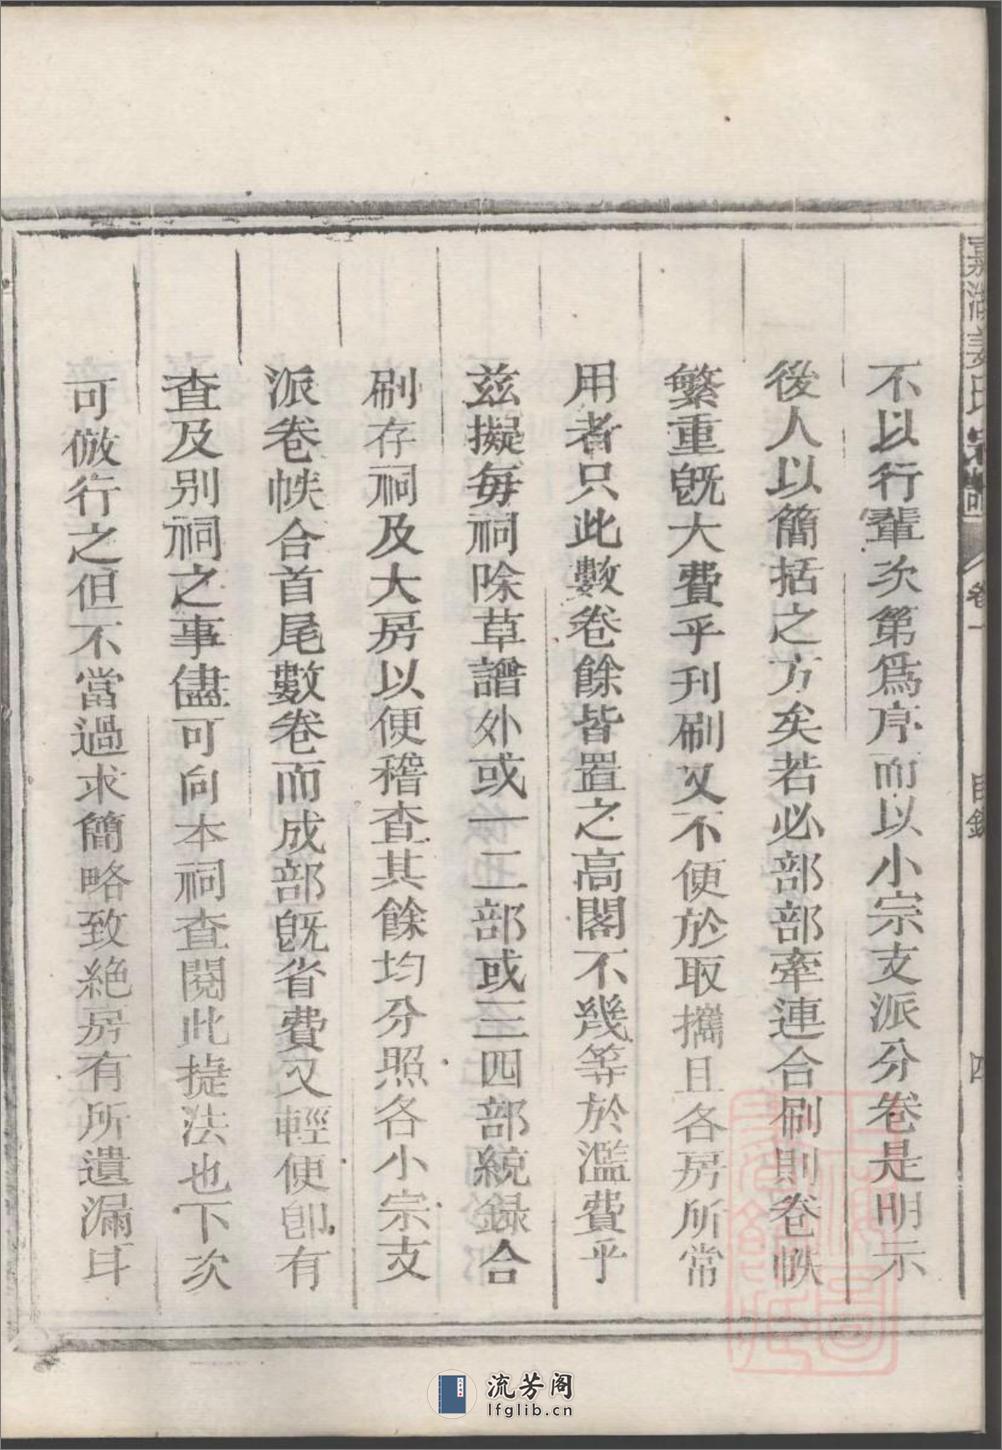 嘉湖姜氏宗譜 卷一 目錄 四
不以行輩次第爲序而以小宗支派分卷是明示
後人以簡括之方矣若必部部牽連合刷則卷帙
繁重旣大費乎刊刷又不便於取攜且各房所常
用者只此數卷餘皆置之高閣不幾等於濫費乎
茲擬每祠除草譜外或一二部或三四部統錄合
刷存祠及大房以便稽查其餘均分照各小宗支
派卷帙合首尾數卷而成部旣省費又輕便卽有
查及别祠之事儘可向本祠查閱此捷法也下次
可倣行之但不當過求簡略致絶房有所遺漏耳
流芳阁
lfglib.cn